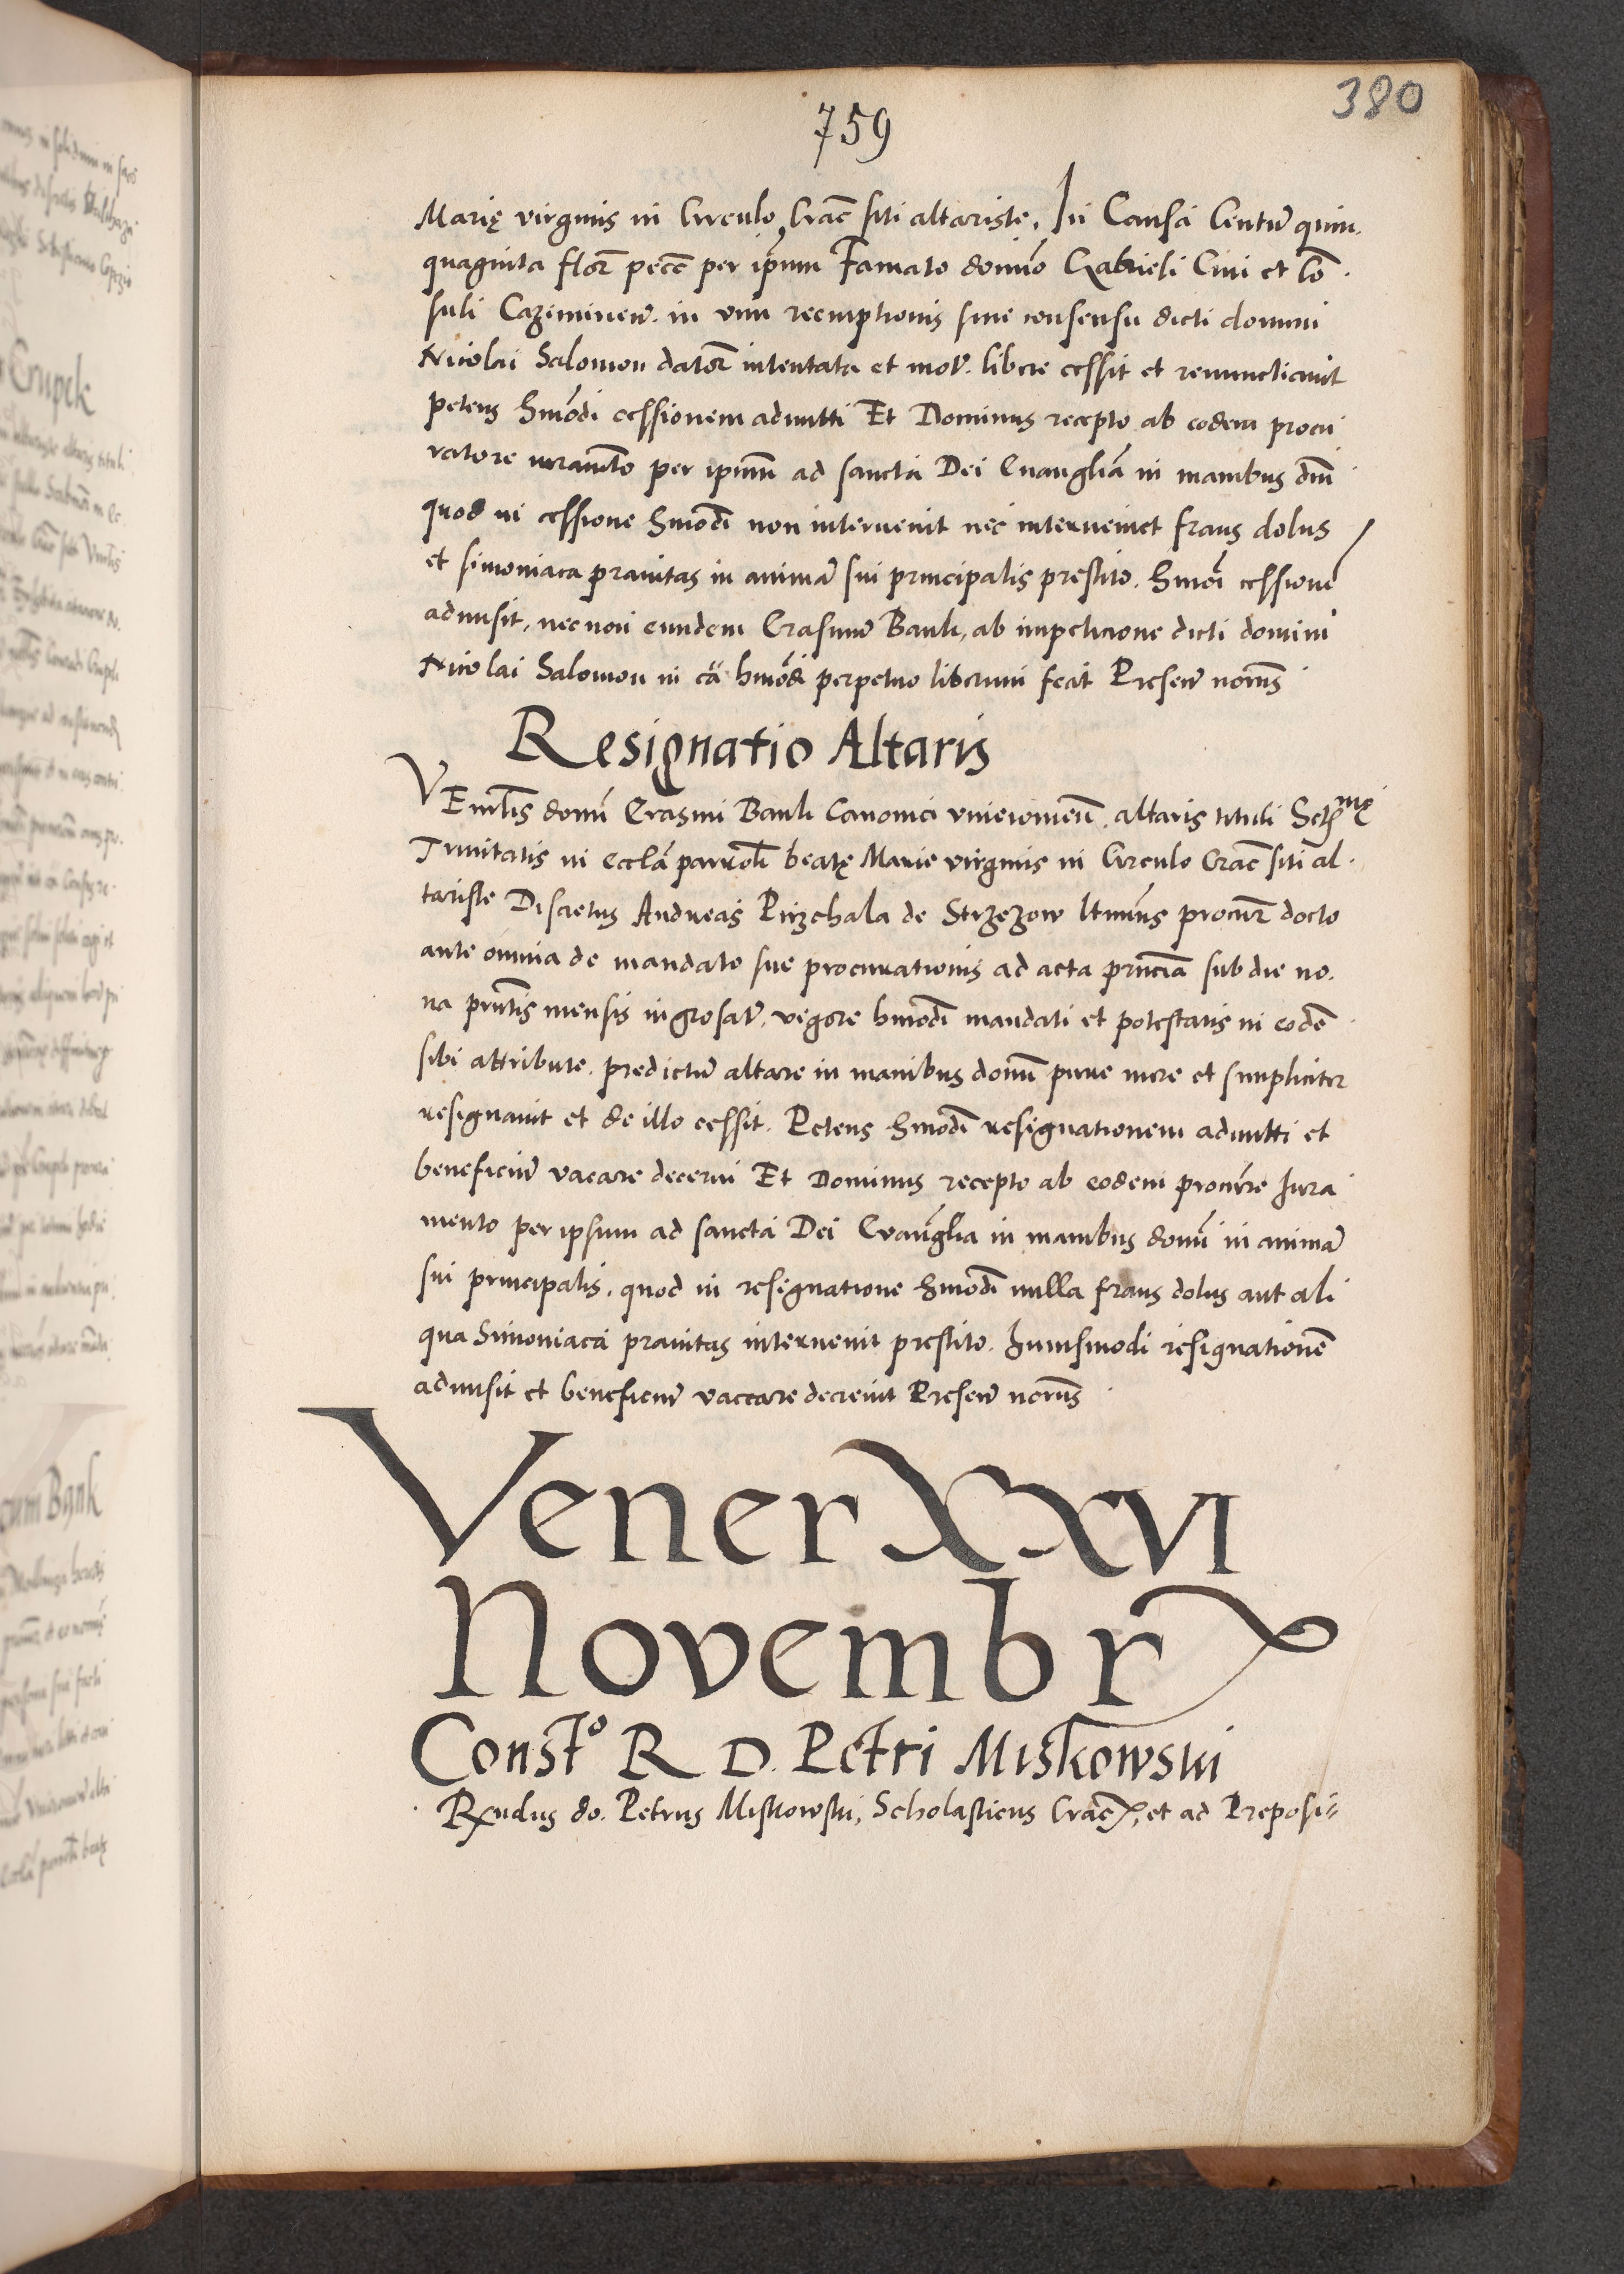 380
759
Marię virginis in Circulo Crac̄ siti altariste, In Causa Centū quin
quaginta florͫ pecc̄ per ip̄um Famato domīo Gabrieli Ciui et Co͞n
suli Cazimirien̄. in vim reemptionis sine consensu dicti domini
Nicolai Salomon dator̄ intentata et mot̄. libere cessit et renunctiauit
petens hmōdi cessionem admitti Et Dominus recepto ab eodem procu
ratore iuramēto per ipsum ad sancta Dei Euangliā in manibus dnī
quod in cessione hmōdi non interuenit nec interueniet fraus dolus
et simoniaca prauitas in animā sui principalis prestito. hmōi cessionē
admisit, necnon eundem Erasmū Bank, ab impeticione dicti domini
Nicolai Salomon in cā hmōdi perpetuo liberum fecit Presen̄ no͞ris
Resignatio Altaris
VEnlīs domī Erasmi Bank Canonici vnieiouien̄. altaris tituli Sctͫmę
Trinitatis in ecclā parrochī beatę Marie virginis in Circulo Crac̄ siti al
tariste Discretus Andreas Pirzchala de Strzezow ltīmus procur̄ docto
ante omnia de mandato sue procurationis ad acta prn̄cia sub die no
na prn̄tis mensis ingrosat̄. vigore hmōdi mandati et potestatis in eodē
sibi attribute. predictū altare in manibus domī pure mere et simpliciter
resignauit et de illo cessit. Petens hmōdi resignationem admitti et
beneficiū vacare decerni Et Dominus recepto ab eodem procur̄re Jura
mento per ipsum ad sancta Dei Evang̅lia in manibus domī in animā
sui principalis. quod in resignatione hmōdi nulla fraus dolus aut ali
qua Simoniaca prauitas interuenit prestito. huiusmodi resignationē
admisit et beneficiū vaccare decreuit Presen̄ no͞ris
Vener XXVI
Novembr
Const͞o R D. Petri Miskowski
Rndus do. Petrus Miskowski, Scholasticus Crac̄, et ad Preposi=